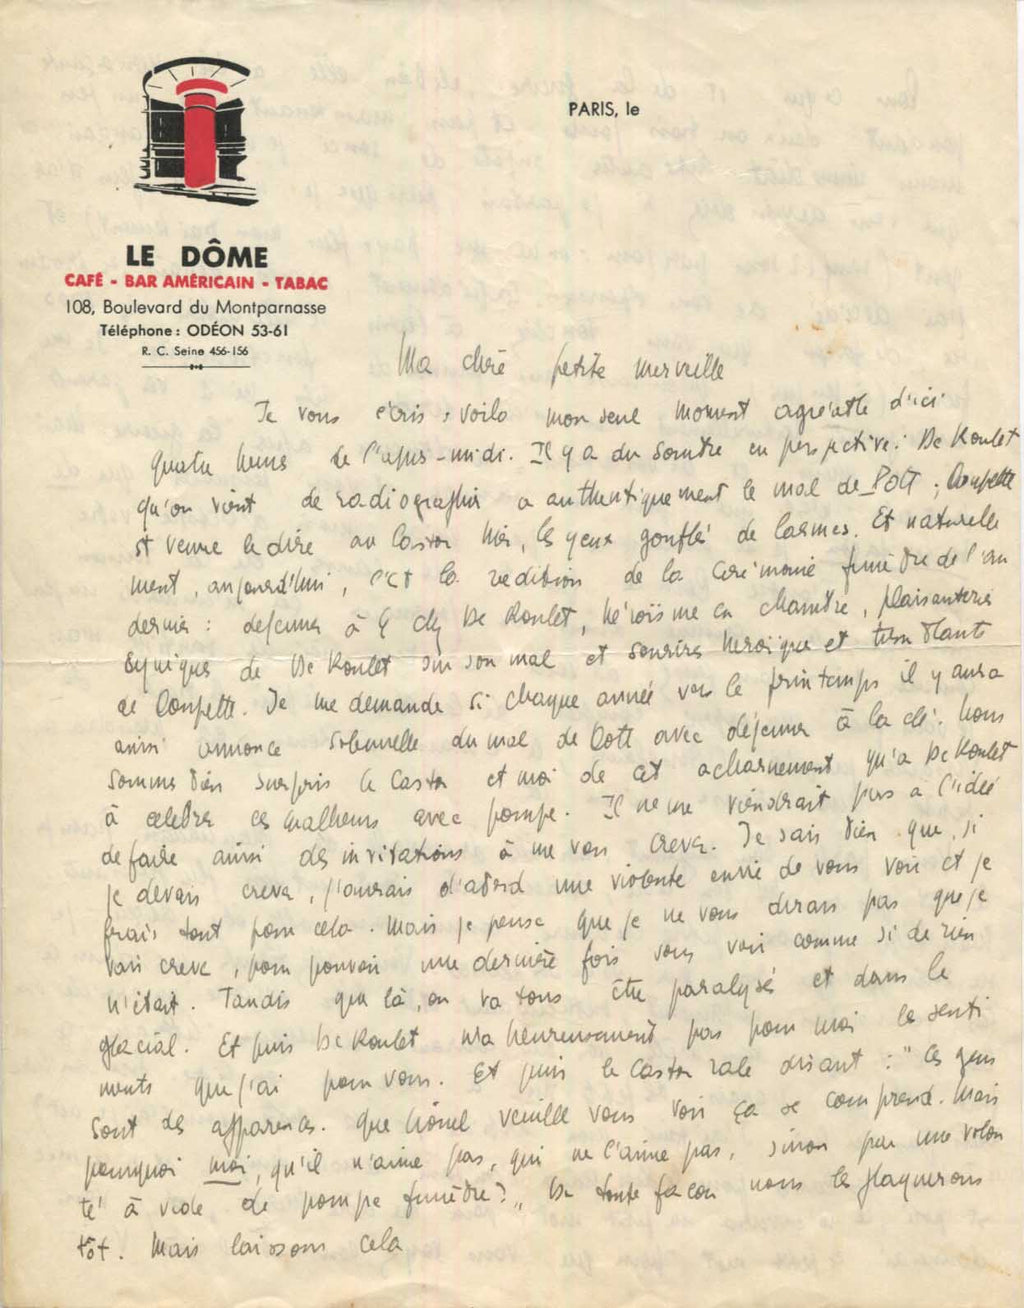 PARIS, le
LE DÔME
CAFÉ - BAR AMÉRICAIN - TABAC
108, Boulevard du Montparnasse
Téléphone : ODÉON 53-61
R. C. Seine 456-156
Ma chère petite merveille
Je vous écris, voilà mon seul moment agréable d'ici
quatre heures de l'après-midi. Il y a du sombre en perspective : De Roulet
qu'on vient de radiographier a authentiquement le mal de POTT ; Poupette
est venue le dire au Castor hier, les yeux gonflés de larmes. Et naturelle
ment, aujourd'hui, c'est la redition de la cérémonie funèbre de l'an
dernier : déjeuner à 4 chez De Roulet, héroïsme en chambre, plaisanteries
cyniques de De Roulet sur son mal et sourires héroïques et tremblants
de Poupette. Je me demande si chaque année vers le printemps il y aura
ainsi annonce solennelle du mal de Pott avec déjeuner à la clé. Nous
sommes bien surpris le Castor et moi de cet acharnement qu'a De Roulet
à célébrer ces malheurs avec pompe. Il ne me viendrait pas à l'idée
de faire ainsi des invitations à me voir crever. Je sais bien que, si
je devais crever, j'aurais d'abord une violente envie de vous voir et je
ferais tout pour cela. Mais je pense que je ne vous dirais pas que je
vais crever, pour pouvoir une dernière fois vous voir comme si de rien
n'était. Tandis que là, on va tous être paralysés et dans le
glacial. Et puis De Roulet n'a heureusement pas pour moi les senti
ments que j'ai pour vous. Et puis le Castor râle disant : "Ces gens
sont des apparences. Que Lionel veuille vous voir ça se comprend. Mais
pourquoi moi, qu'il n'aime pas, qui ne l'aime pas, sinon par une volon
té à vide de pompe funèbre ?" De toute façon nous les plaquerons
tôt. Mais laissons cela